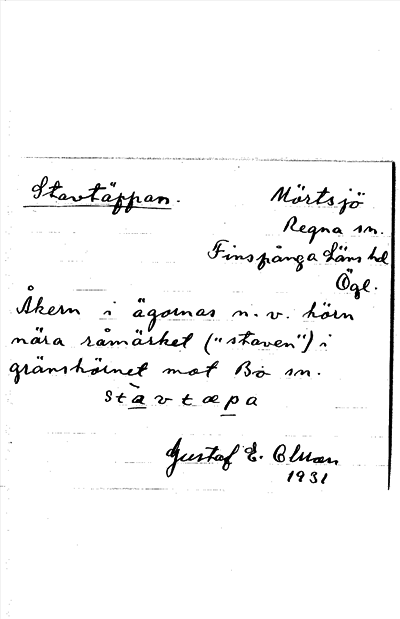 Stavtäppan. Mörtsjö
Regna sn.
Finspånga Läns hd
Ögl.
Åkern i ägornas n.v. hörn
nära råmärket ("staven") i
gränshörnet mot Bo sn.
stàvtæpa
Gustaf E.
1931